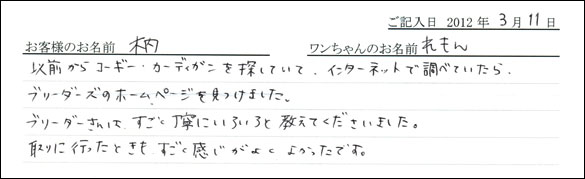 ご記入日 2012 年 3 月 11 日
お客様のお名前 柄 ワンちゃんのお名前 れもん
以前からコーギー・カーディガンを探していて、インターネットで調べていたら、
ブリーダーズのホームページを見つけました。
ブリーダーさんは、すごく丁寧にいろいろと教えてくださいました。
取りに行ったときも、すごく感じがよく よかったです。